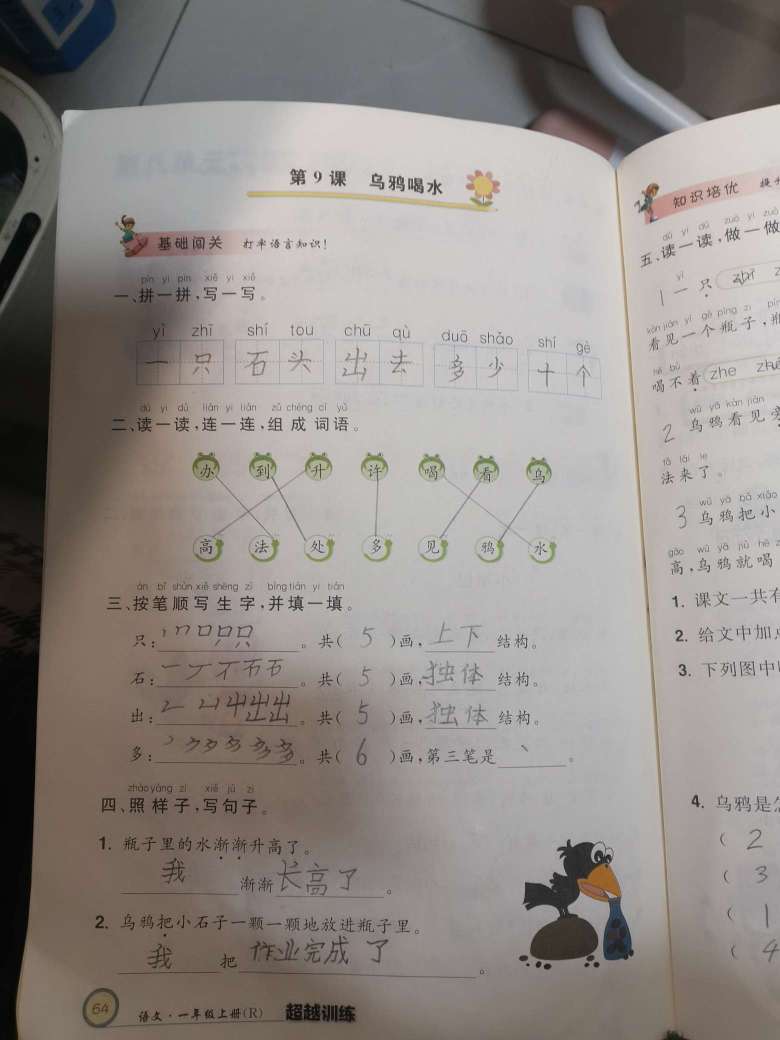 第9课 乌鸦喝水
基础闯关 打牢语言知识!
pīn yi pīn xiě yi xiě
一、拼一拼,写一写。
yì zhī shí tou chū qù duō shǎo shí gè
一只 石头 出去 多少 十个
dú yi dú lián yi lián zǔ chéng cí yǔ
二、读一读,连一连,组成词语。
办 到 升 许 喝 看 乌
高 法 处 多 见 鸦 水
àn bǐ shùn xiě shēng zì bìng tián yi tián
三、按笔顺写生字,并填一填。
只: 共( 5 )画,上下结构。
石: 共( 5 )画,独体结构。
出: 共( 5 )画,独体结构。
多: 共( 6 )画,第三笔是丶。
zhào yàng zi xiě jù zi
四、照样子,写句子。
1. 瓶子里的水渐渐升高了。
我渐渐长高了。
2. 乌鸦把小石子一颗一颗地放进瓶子里。
我把作业完成了。
64 语文·一年级上册(R) 超越训练
知识培优
dú yi dú zuò yi zuò
五、读一读,做一做
yì
1 一只
kàn jiàn yí gè píng zi
看见一个瓶子,
hē bù
喝不着 zhe
wū yā kàn jiàn
2 乌鸦看见
fǎ lái le
法来了。
wū yā bǎ xiǎo
3 乌鸦把小
gāo wū yā jiù hē
高,乌鸦就喝
1. 课文一共有
2. 给文中加
3. 下列图中
4. 乌鸦是
( 2
( 3
( 1
( 4